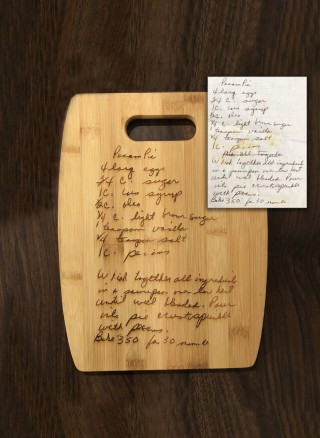 Pecan Pie
4 larg eggs
3/4 C. sugar
1C. Caro syrup
½C. oleo
¼ C. light brown sugar
1 teaspoon vanilla
¼ teaspoon salt
1C. pecans
Whisk together all ingredients
in a saucepan over low heat
until well blended. Pour
into pie crust
with pecans.
Bake 350 for 30 minutes
Pecan Pie
4 larg eggs
3/4 C. sugar
¼ C. light brown sugar
1 teaspoon vanilla
¼ teaspoon salt
Whisk together all ingredients
in a saucepan over low heat
until well blended. Pour
into pie crust
with pecans.
Bake 350 for 30 minutes